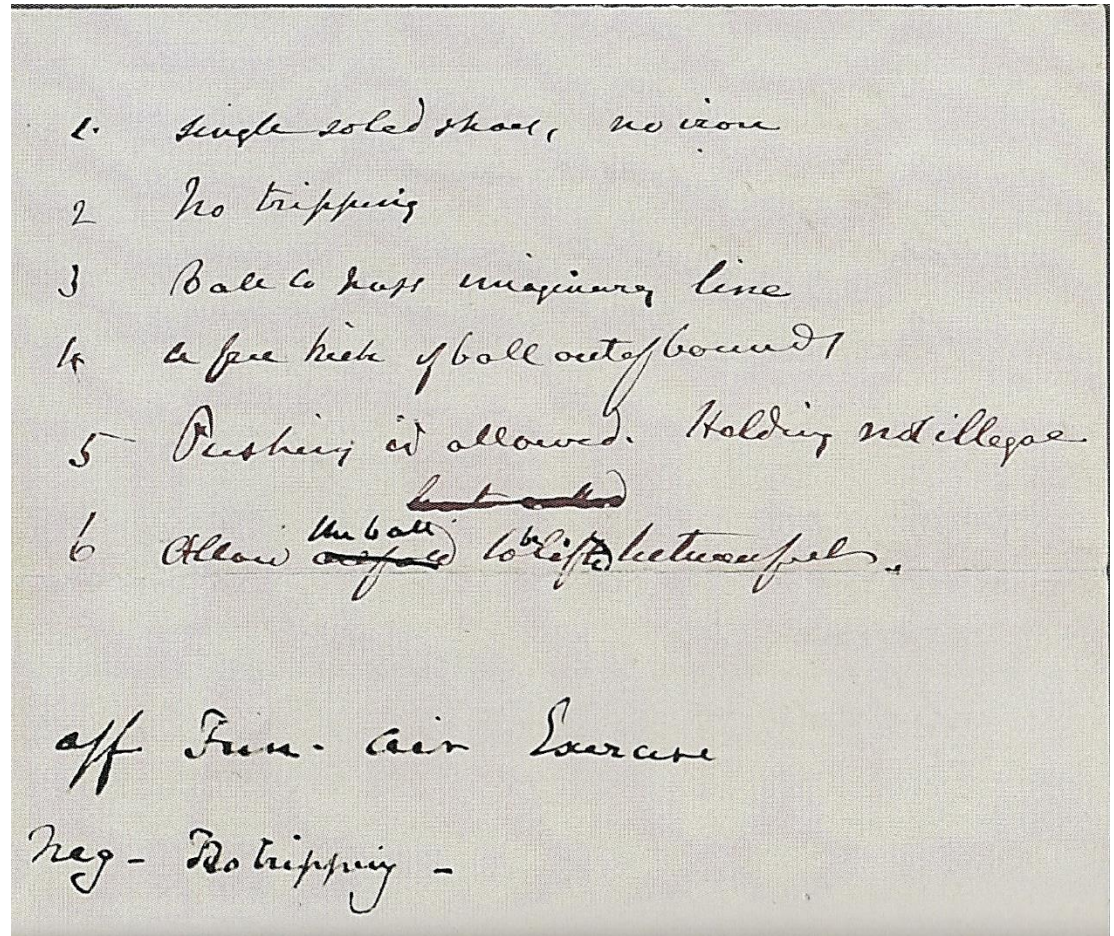 1. single soled shoes, no iron
2 No tripping
3 Ball to pass imaginary line
4 a free kick if ball out of bounds
5 Pushing is allowed. Holding not illegal
the ball be
6 Allow to lifted between feet.
aff Fun - air Exercise
Neg - No tripping -